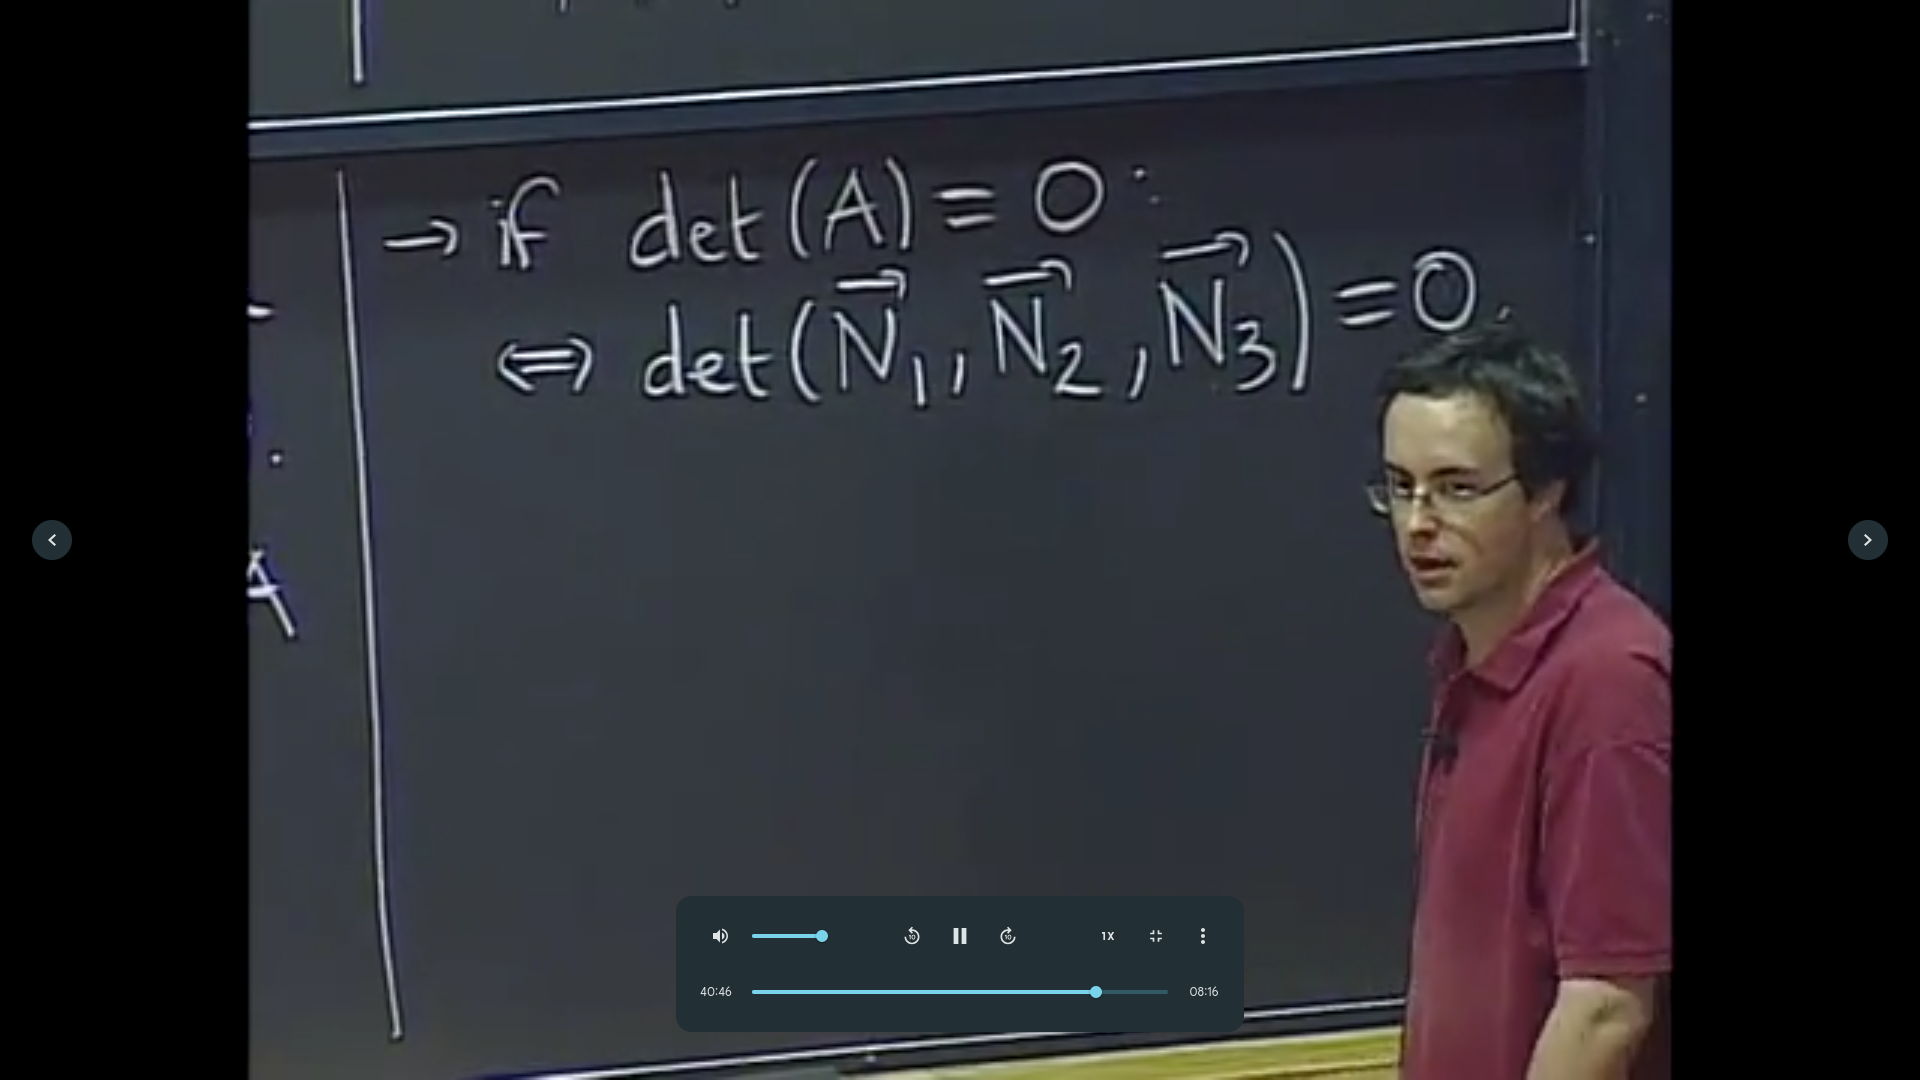 → if det(A) = 0:
⇔ det(N⃗₁, N⃗₂, N⃗₃) = 0.
A
10
10
1X
40:46
08:16